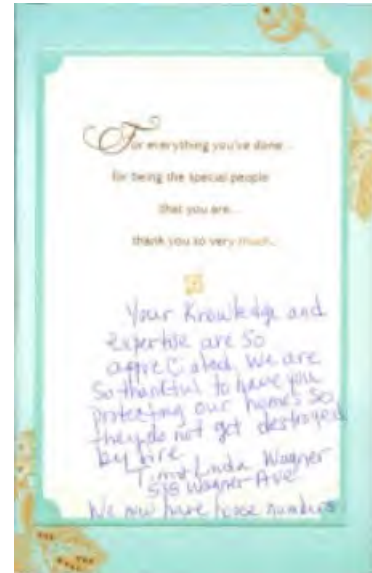 For everything you've done...
for being the special people
that you are...
thank you so very much.
Your Knowledge and
expertise are so
appreciated. We are
So thankful to have you
protecting our homes so
they do not get destroyed
by fire
Tim & Linda Wagner
Wagner Ave
We now have house numbers